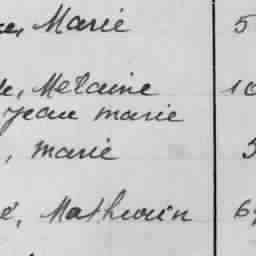 Marie 5
, Melaine 10
Jean Marie
, Marie
é, Mathurin 6